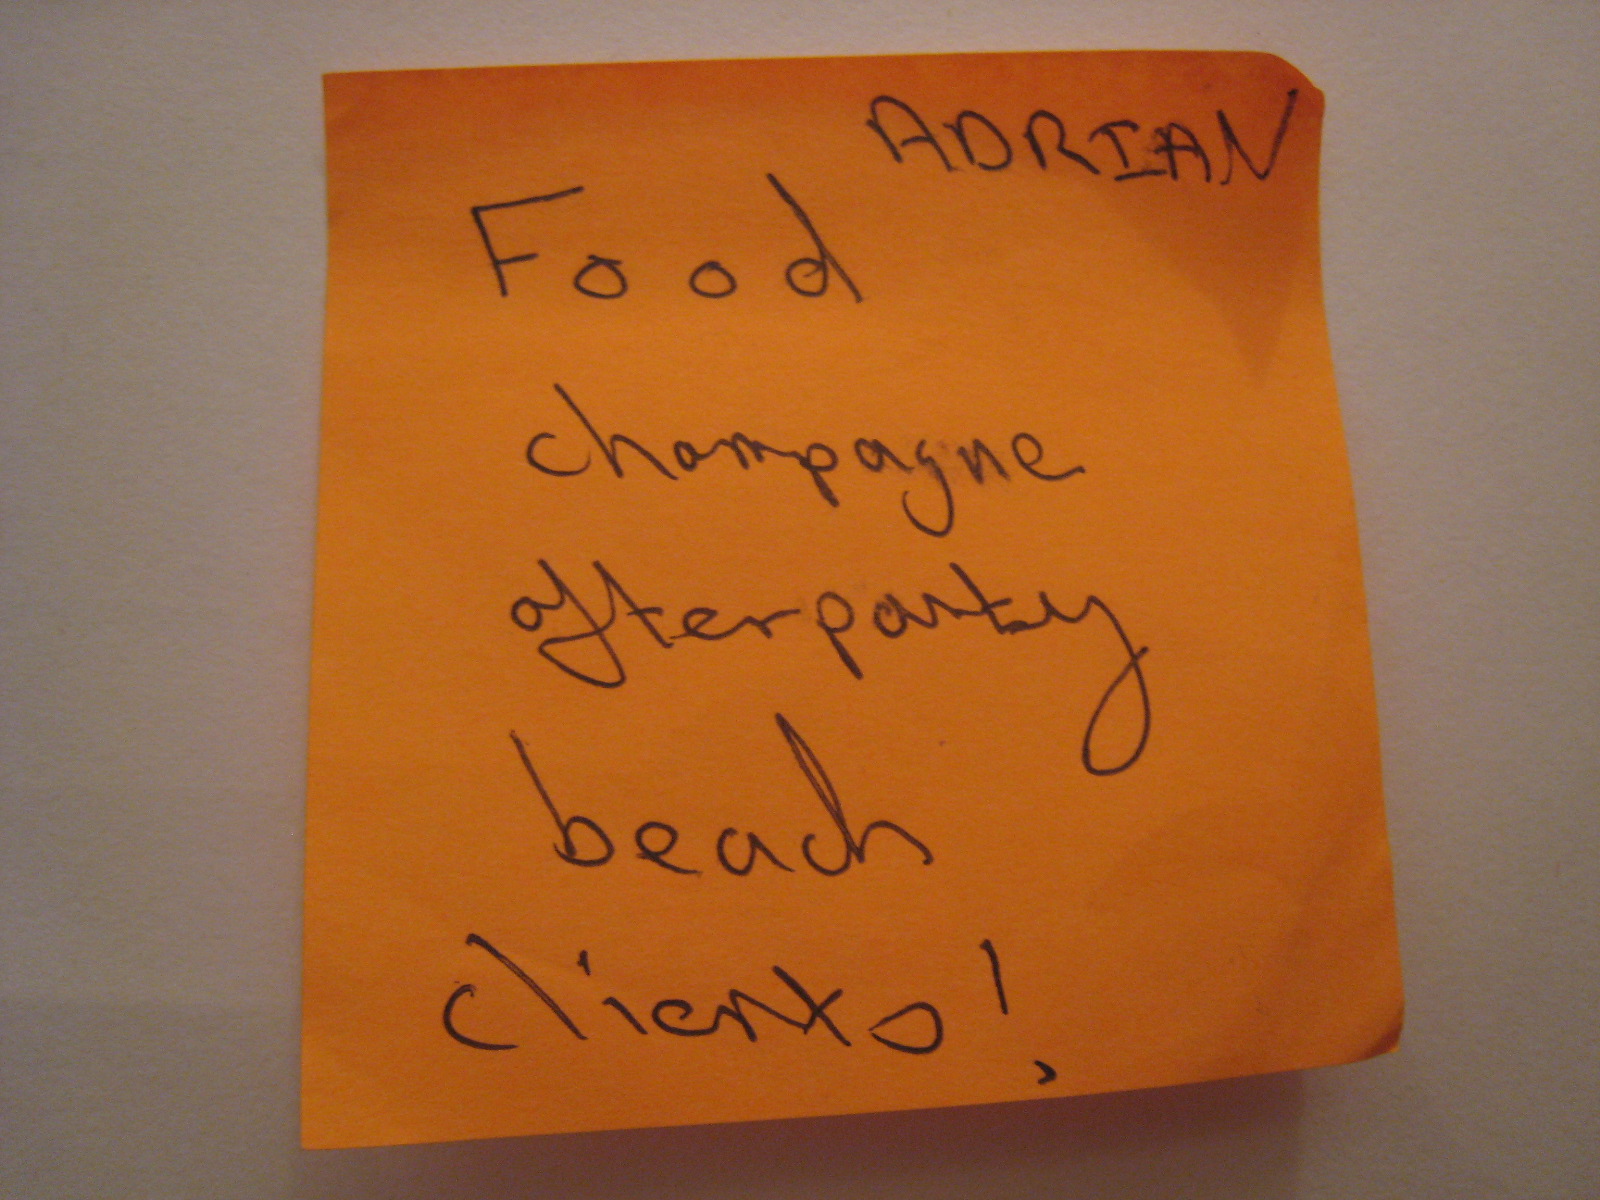 ADRIAN
Food
champagne
afterparty
beach
clients!